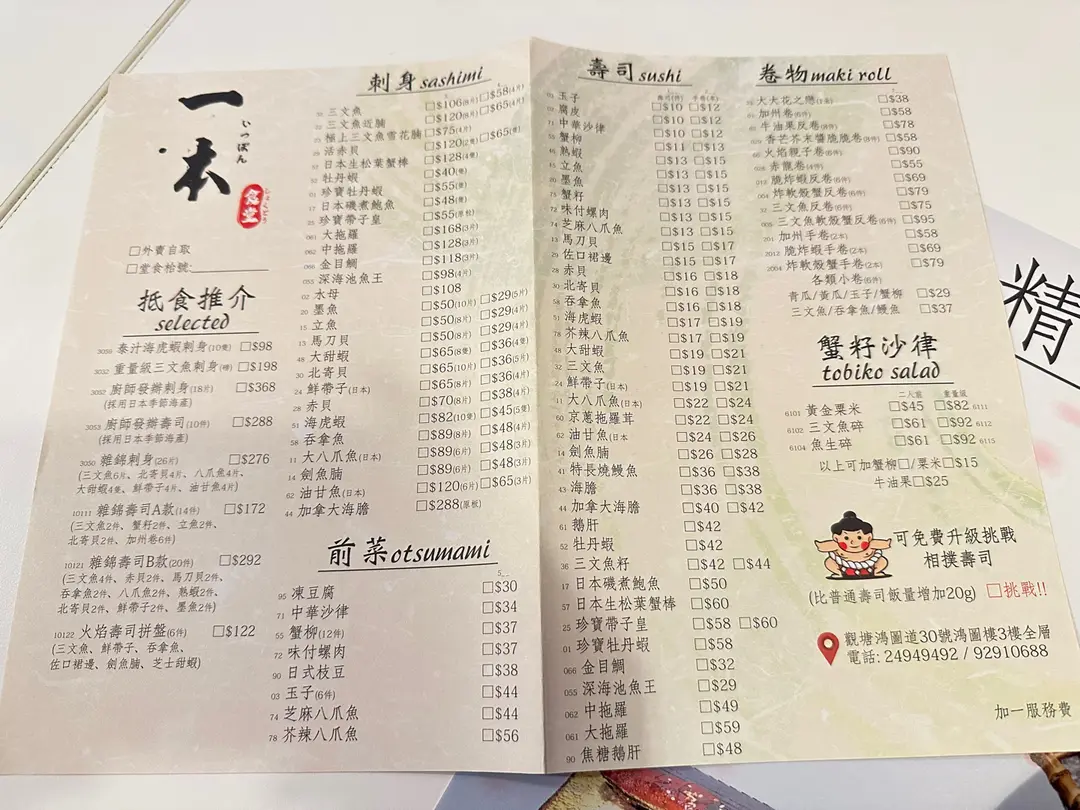 一本
いっぽん
食堂
しょくどう
□外賣自取
□堂食枱號:
抵食推介
selected
3059 泰汁海虎蝦刺身(10隻) □$98
3032 重量級三文魚刺身(磚) □$198
3052 廚師發辦刺身(18片) □$368
(採用日本季節海產)
3053 廚師發辦壽司(10件) □$288
(採用日本季節海產)
3050 雜錦刺身(26片) □$276
(三文魚6片、北寄貝4片、八爪魚4片、
大甜蝦4隻、鮮帶子4片、油甘魚4片)
10111 雜錦壽司A款(14件) □$172
(三文魚2件、蟹籽2件、立魚2件、
北寄貝2件、加州卷6件)
10121 雜錦壽司B款(20件) □$292
(三文魚4件、赤貝2件、馬刀貝2件、
吞拿魚2件、八爪魚2件、熟蝦2件、
北寄貝2件、鮮帶子2件、墨魚2件)
10122 火焰壽司拼盤(6件) □$122
(三文魚、鮮帶子、吞拿魚、
佐口裙邊、劍魚腩、芝士甜蝦)
刺身 sashimi
三文魚 □$106(8片) □$58(4片)
三文魚近腩 □$120(8片) □$65(4片)
極上三文魚雪花腩 □$75(4片)
活赤貝 □$120(2隻) □$65(隻)
日本生松葉蟹棒 □$128(4隻)
牡丹蝦 □$40(隻)
01 珍寶牡丹蝦 □$55(隻)
17 日本磯煮鮑魚 □$48(隻)
25 珍寶帶子皇 □$55(原粒)
061 大拖羅 □$168(3片)
062 中拖羅 □$128(3片)
066 金目鯛 □$118(3片)
055 深海池魚王 □$98(4片)
02 水母 □$108
20 墨魚 □$50(10片) □$29(5片)
15 立魚 □$50(8片) □$29(4片)
13 馬刀貝 □$50(8片) □$29(4片)
48 大甜蝦 □$65(8隻) □$36(4隻)
30 北寄貝 □$65(10片) □$36(5片)
24 鮮帶子(日本) □$65(8片) □$36(4片)
28 赤貝 □$70(8片) □$38(4片)
51 海虎蝦 □$82(10隻) □$45(5隻)
58 吞拿魚 □$89(8片) □$48(4片)
11 大八爪魚(日本) □$89(6片) □$48(3片)
14 劍魚腩 □$89(6片) □$48(3片)
62 油甘魚(日本) □$120(6片) □$65(3片)
44 加拿大海膽 □$288(原板)
前菜 otsumami
95 凍豆腐 □$30
71 中華沙律 □$34
55 蟹柳(12件) □$37
72 味付螺肉 □$37
90 日式枝豆 □$38
03 玉子(6件) □$44
74 芝麻八爪魚 □$44
78 芥辣八爪魚 □$56
壽司 sushi
壽司(件) 手卷(本)
03 玉子 □$10 □$12
腐皮 □$10 □$12
71 中華沙律 □$10 □$12
55 蟹柳 □$11 □$13
熟蝦 □$13 □$15
15 立魚 □$13 □$15
20 墨魚 □$13 □$15
蟹籽 □$13 □$15
72 味付螺肉 □$13 □$15
74 芝麻八爪魚 □$13 □$15
13 馬刀貝 □$15 □$17
29 佐口裙邊 □$15 □$17
28 赤貝 □$16 □$18
30 北寄貝 □$16 □$18
58 吞拿魚 □$16 □$18
51 海虎蝦 □$17 □$19
78 芥辣八爪魚 □$17 □$19
48 大甜蝦 □$19 □$21
32 三文魚 □$19 □$21
24 鮮帶子(日本) □$19 □$21
11 大八爪魚(日本) □$22 □$24
60 京蔥拖羅茸 □$22 □$24
62 油甘魚(日本 □$24 □$26
14 劍魚腩 □$26 □$28
41 特長燒鰻魚 □$36 □$38
43 海膽 □$36 □$38
44 加拿大海膽 □$40 □$42
61 鵝肝 □$42
52 牡丹蝦 □$42
36 三文魚籽 □$42 □$44
17 日本磯煮鮑魚 □$50
57 日本生松葉蟹棒 □$60
25 珍寶帶子皇 □$58 □$60
01 珍寶牡丹蝦 □$58
066 金目鯛 □$32
055 深海池魚王 □$29
062 中拖羅 □$49
061 大拖羅 □$59
90 焦糖鵝肝 □$48
卷物 maki roll
大大花之戀 □$38
加州卷(6件) □$58
牛油果反卷(8件) □$78
香芒芥末醬脆脆卷(8件) □$58
火焰親子卷(8件) □$90
赤龍卷(4件) □$55
脆炸蝦反卷(6件) □$69
004 炸軟殼蟹反卷(6件) □$79
32 三文魚反卷(6件) □$75
005 三文魚軟殼蟹反卷(6件) □$95
加州手卷(2本) □$58
201 脆炸蝦手卷(2本) □$69
2004 炸軟殼蟹手卷(2本) □$79
各類小卷(6件)
青瓜/黃瓜/玉子/蟹柳 □$29
三文魚/吞拿魚/鰻魚 □$37
蟹籽沙律
tobiko salad
二人前 重量級
6101 黃金粟米 □$45 □$82 6111
6102 三文魚碎 □$61 □$92 6112
6104 魚生碎 □$61 □$92 6115
以上可加蟹柳□/粟米□$15
牛油果□$25
可免費升級挑戰
相撲壽司
(比普通壽司飯量增加20g) □挑戰!!
觀塘鴻圖道30號鴻圖樓3樓全層
電話: 24949492 / 92910688
加一服務費
精